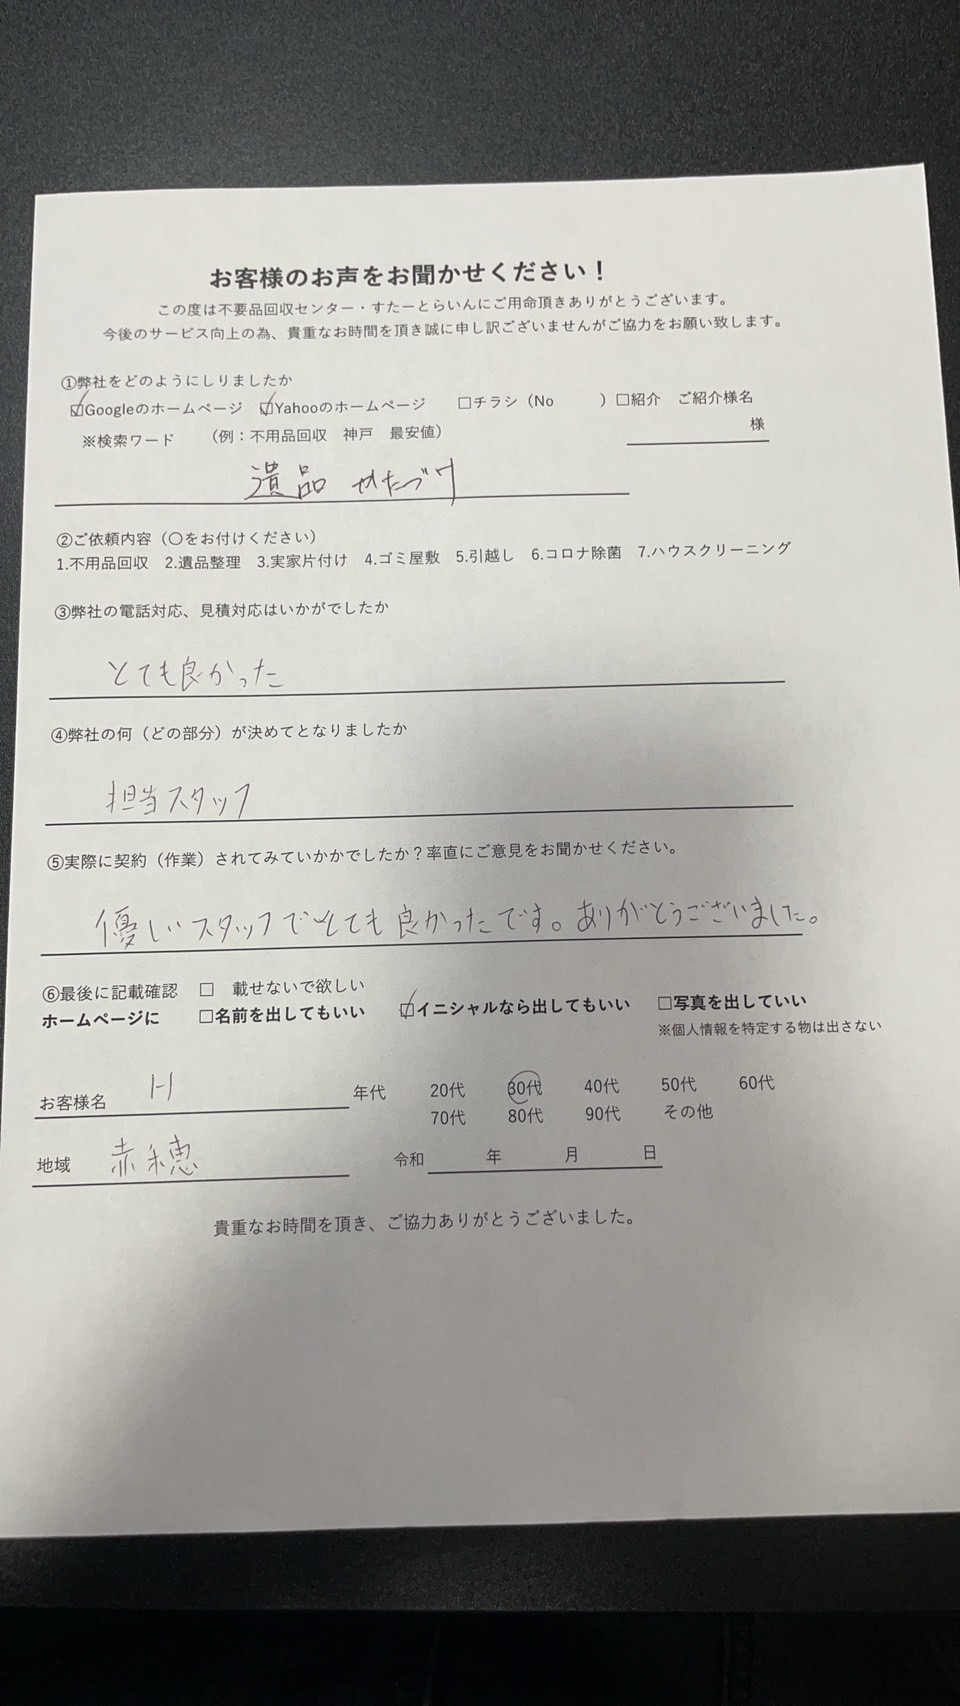 お客様のお声をお聞かせください！
この度は不要品回収センター・すたーとらいんにご用命頂きありがとうございます。
今後のサービス向上の為、貴重なお時間を頂き誠に申し訳ございませんがご協力をお願い致します。
①弊社をどのようにしりましたか
☑Googleのホームページ ☑Yahooのホームページ □チラシ（No ）□紹介 ご紹介様名
※検索ワード （例：不用品回収 神戸 最安値） 様
遺品 かたづけ
②ご依頼内容（〇をお付けください）
1.不用品回収 2.遺品整理 3.実家片付け 4.ゴミ屋敷 5.引越し 6.コロナ除菌 7.ハウスクリーニング
③弊社の電話対応、見積対応はいかがでしたか
とても良かった
④弊社の何（どの部分）が決めてとなりましたか
担当スタッフ
⑤実際に契約（作業）されてみていかかでしたか？率直にご意見をお聞かせください。
優しいスタッフでとても良かったです。ありがとうございました。
⑥最後に記載確認 □ 載せないで欲しい
ホームページに □名前を出してもいい ☑イニシャルなら出してもいい □写真を出していい
※個人情報を特定する物は出さない
お客様名 H 年代 20代 30代 40代 50代 60代
70代 80代 90代 その他
地域 赤穂 令和 年 月 日
貴重なお時間を頂き、ご協力ありがとうございました。